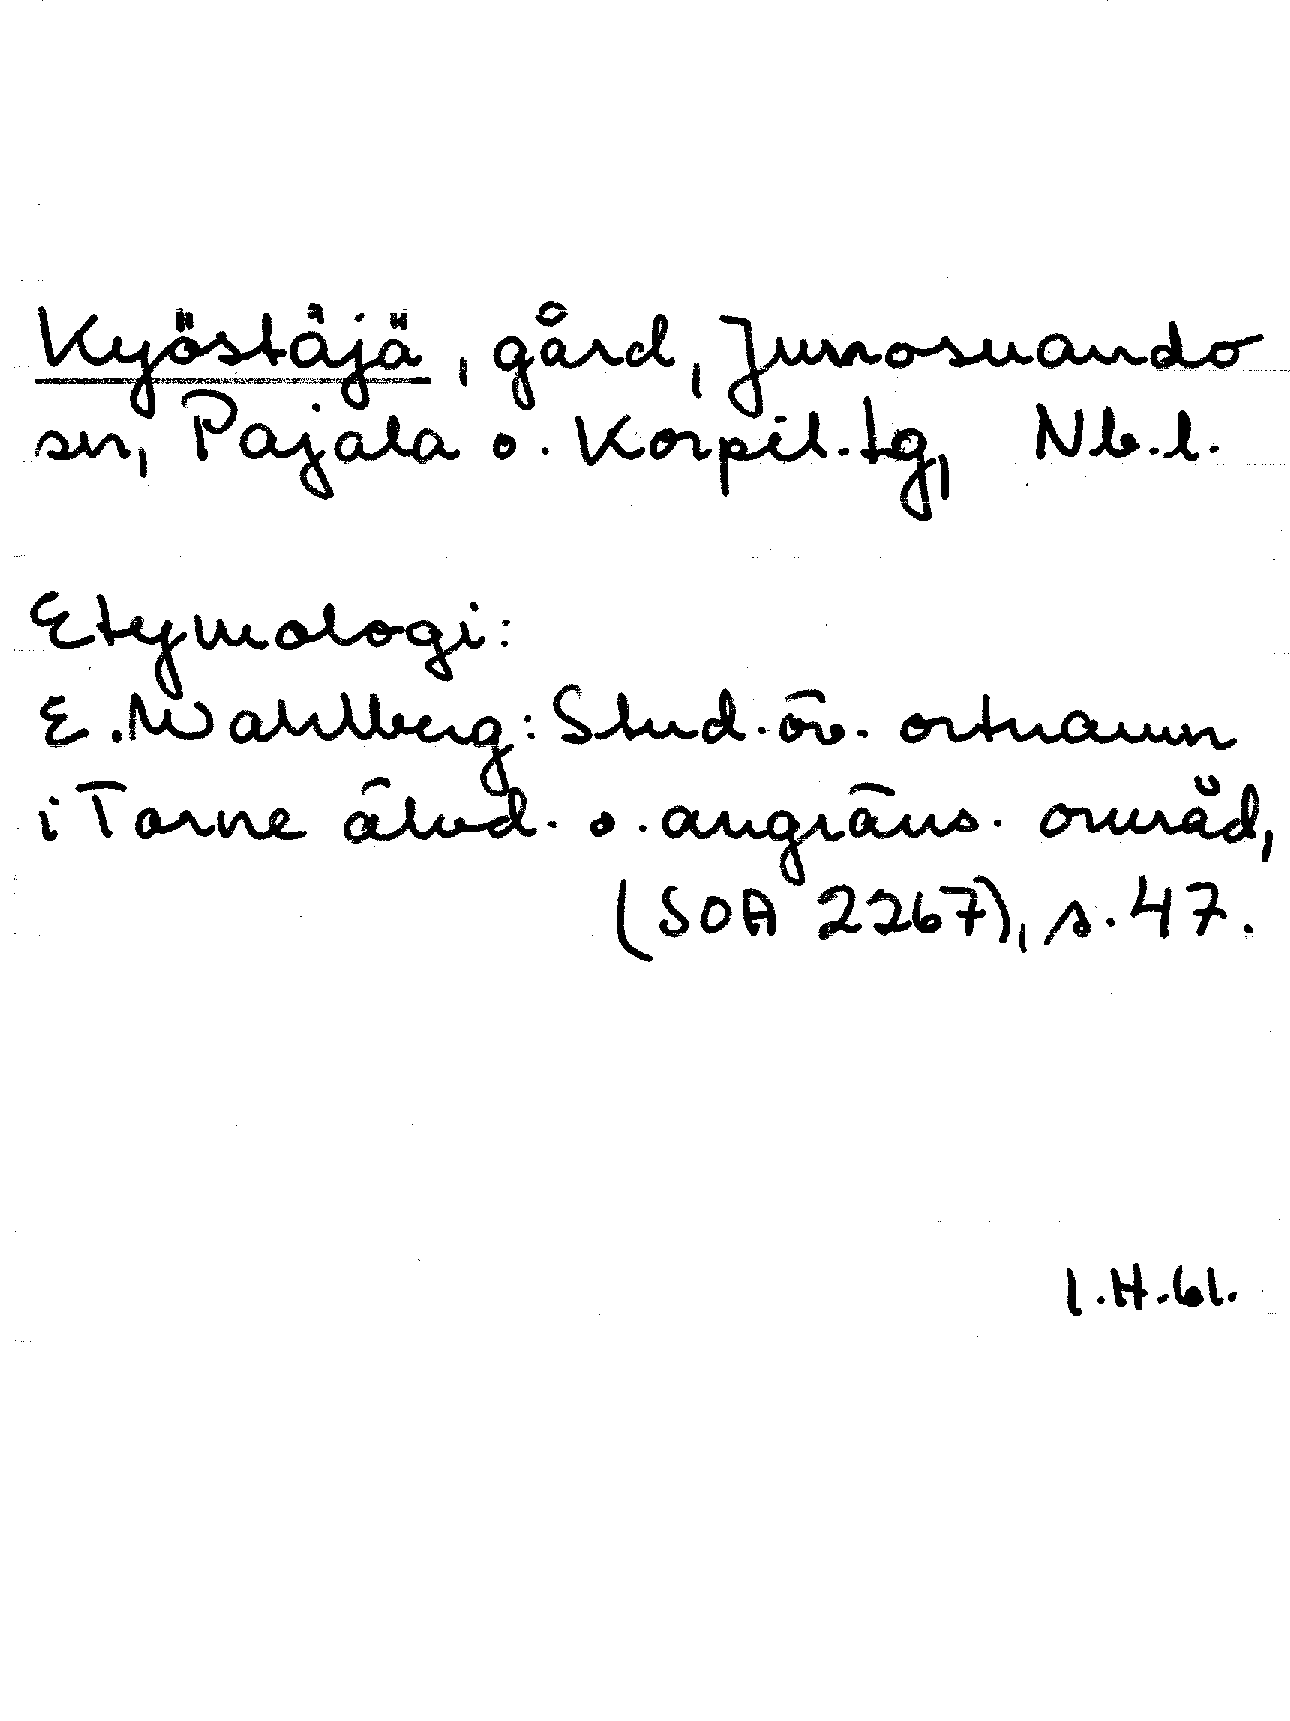 Kyöstäjä, gård, Junosuando
sn, Pajala o. Korpil. tg, Nb. l.
Etymologi:
E. Wahlberg: Stud. öv. ortnamn
i Torne älvd. o. angräns. områd,
(SOA 2267), s. 47.
I.H.61.